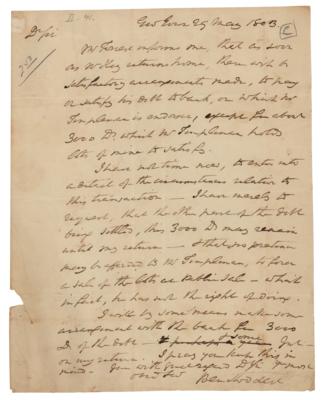 Geo Town 29 May 1803
D Sir
Mr Forrest informs me, that as soon
as Wiley returns home, there will be
satisfactory arrangements made, to pay
or satisfy his debt to bank, on which Mr
Templeman is endorser, except for about
3000 D. which Mr Templeman holds
lots of mine to satisfy.
I have not time now, to enter into
a detail of the circumstances relative to
this transaction — I have merely to
request, that the other part of the debt
being settled, this 3000 D. may remain
until my return — other property
may be offered to Mr Templeman, to force
a sale of the lots at Public Sale — which
in fact, he has not the right of doing.
I will by some means make some
arrangement with the bank for 3000
D. of the debt —
on my return. I pray you keep this in
mind. I am with great regard D Sir yr most
obed Ser
Ben Stoddert